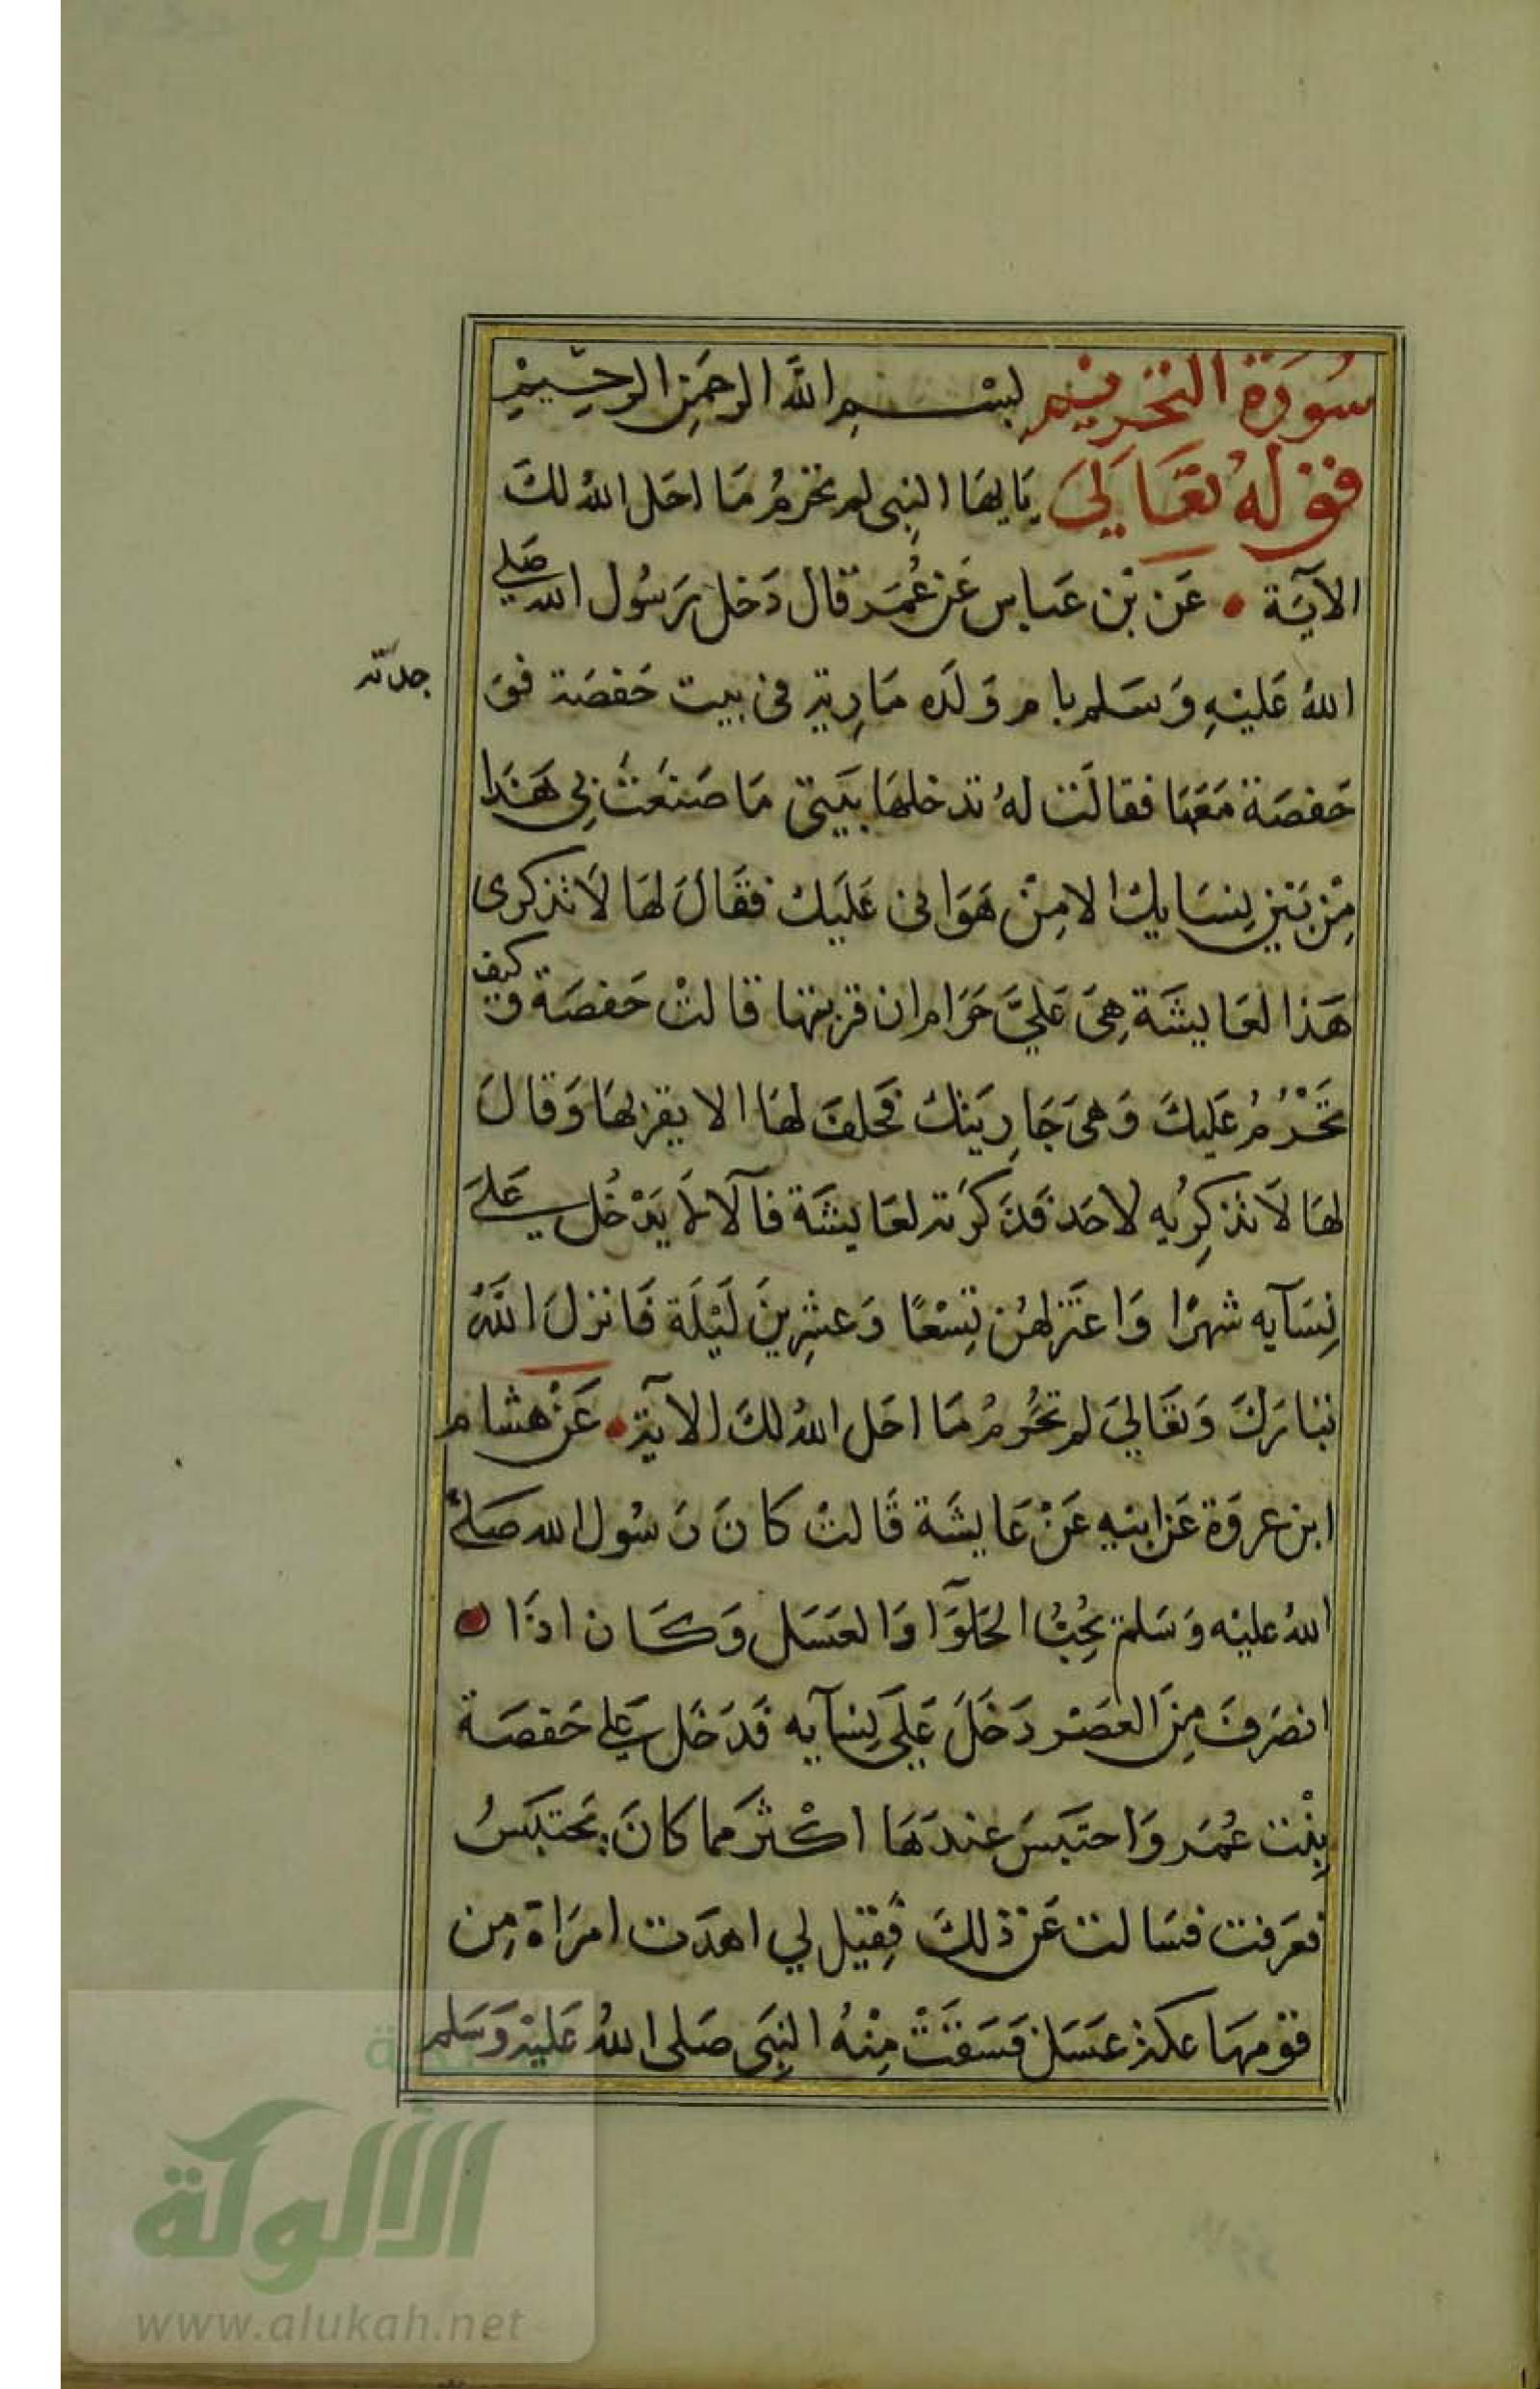 سُورَة التحريم بسم الله الرحمن الرحيم
قوله تعالى يايها النبى لم تحرم ما احل الله لك
الآية • عن بن عباس عن عمر قال دخل رسول الله صلى
الله عليه وسلم بام ولده مارية فى بيت حفصة فو
جدته
حفصة معها فقالت له تدخلها بيتى ما صنعت بى هذا
من بين نسايك الا من هوانى عليك فقال لها لا تذكرى
هذا لعايشة هى علي حرام ان قربتها قالت حفصة وكيف
تحرم عليك وهى جاريتك فحلف لها الا يقربها وقال
لها لا تذكريه لاحد فذكرته لعايشة فآلا لا يدخل على
نسآيه شهرا واعتزلهن تسعا وعشرين ليلة فانزل الله
تبارك وتعالى لم تحرم ما احل الله لك الآية • عن هشام
ابن عروة عن ابيه عن عايشة قالت كان رسول الله صلى
الله عليه وسلم يحب الحلوا والعسل وكان اذا
انصرف من العصر دخل على نسآيه فدخل على حفصة
بنت عمر واحتبس عندها اكثر مما كان يحتبس
فعرفت فسالت عن ذلك فقيل لي اهدت امراة من
قومها عكة عسل فسقت منه النبى صلى الله عليه وسلم
الألوكة
www.alukah.net